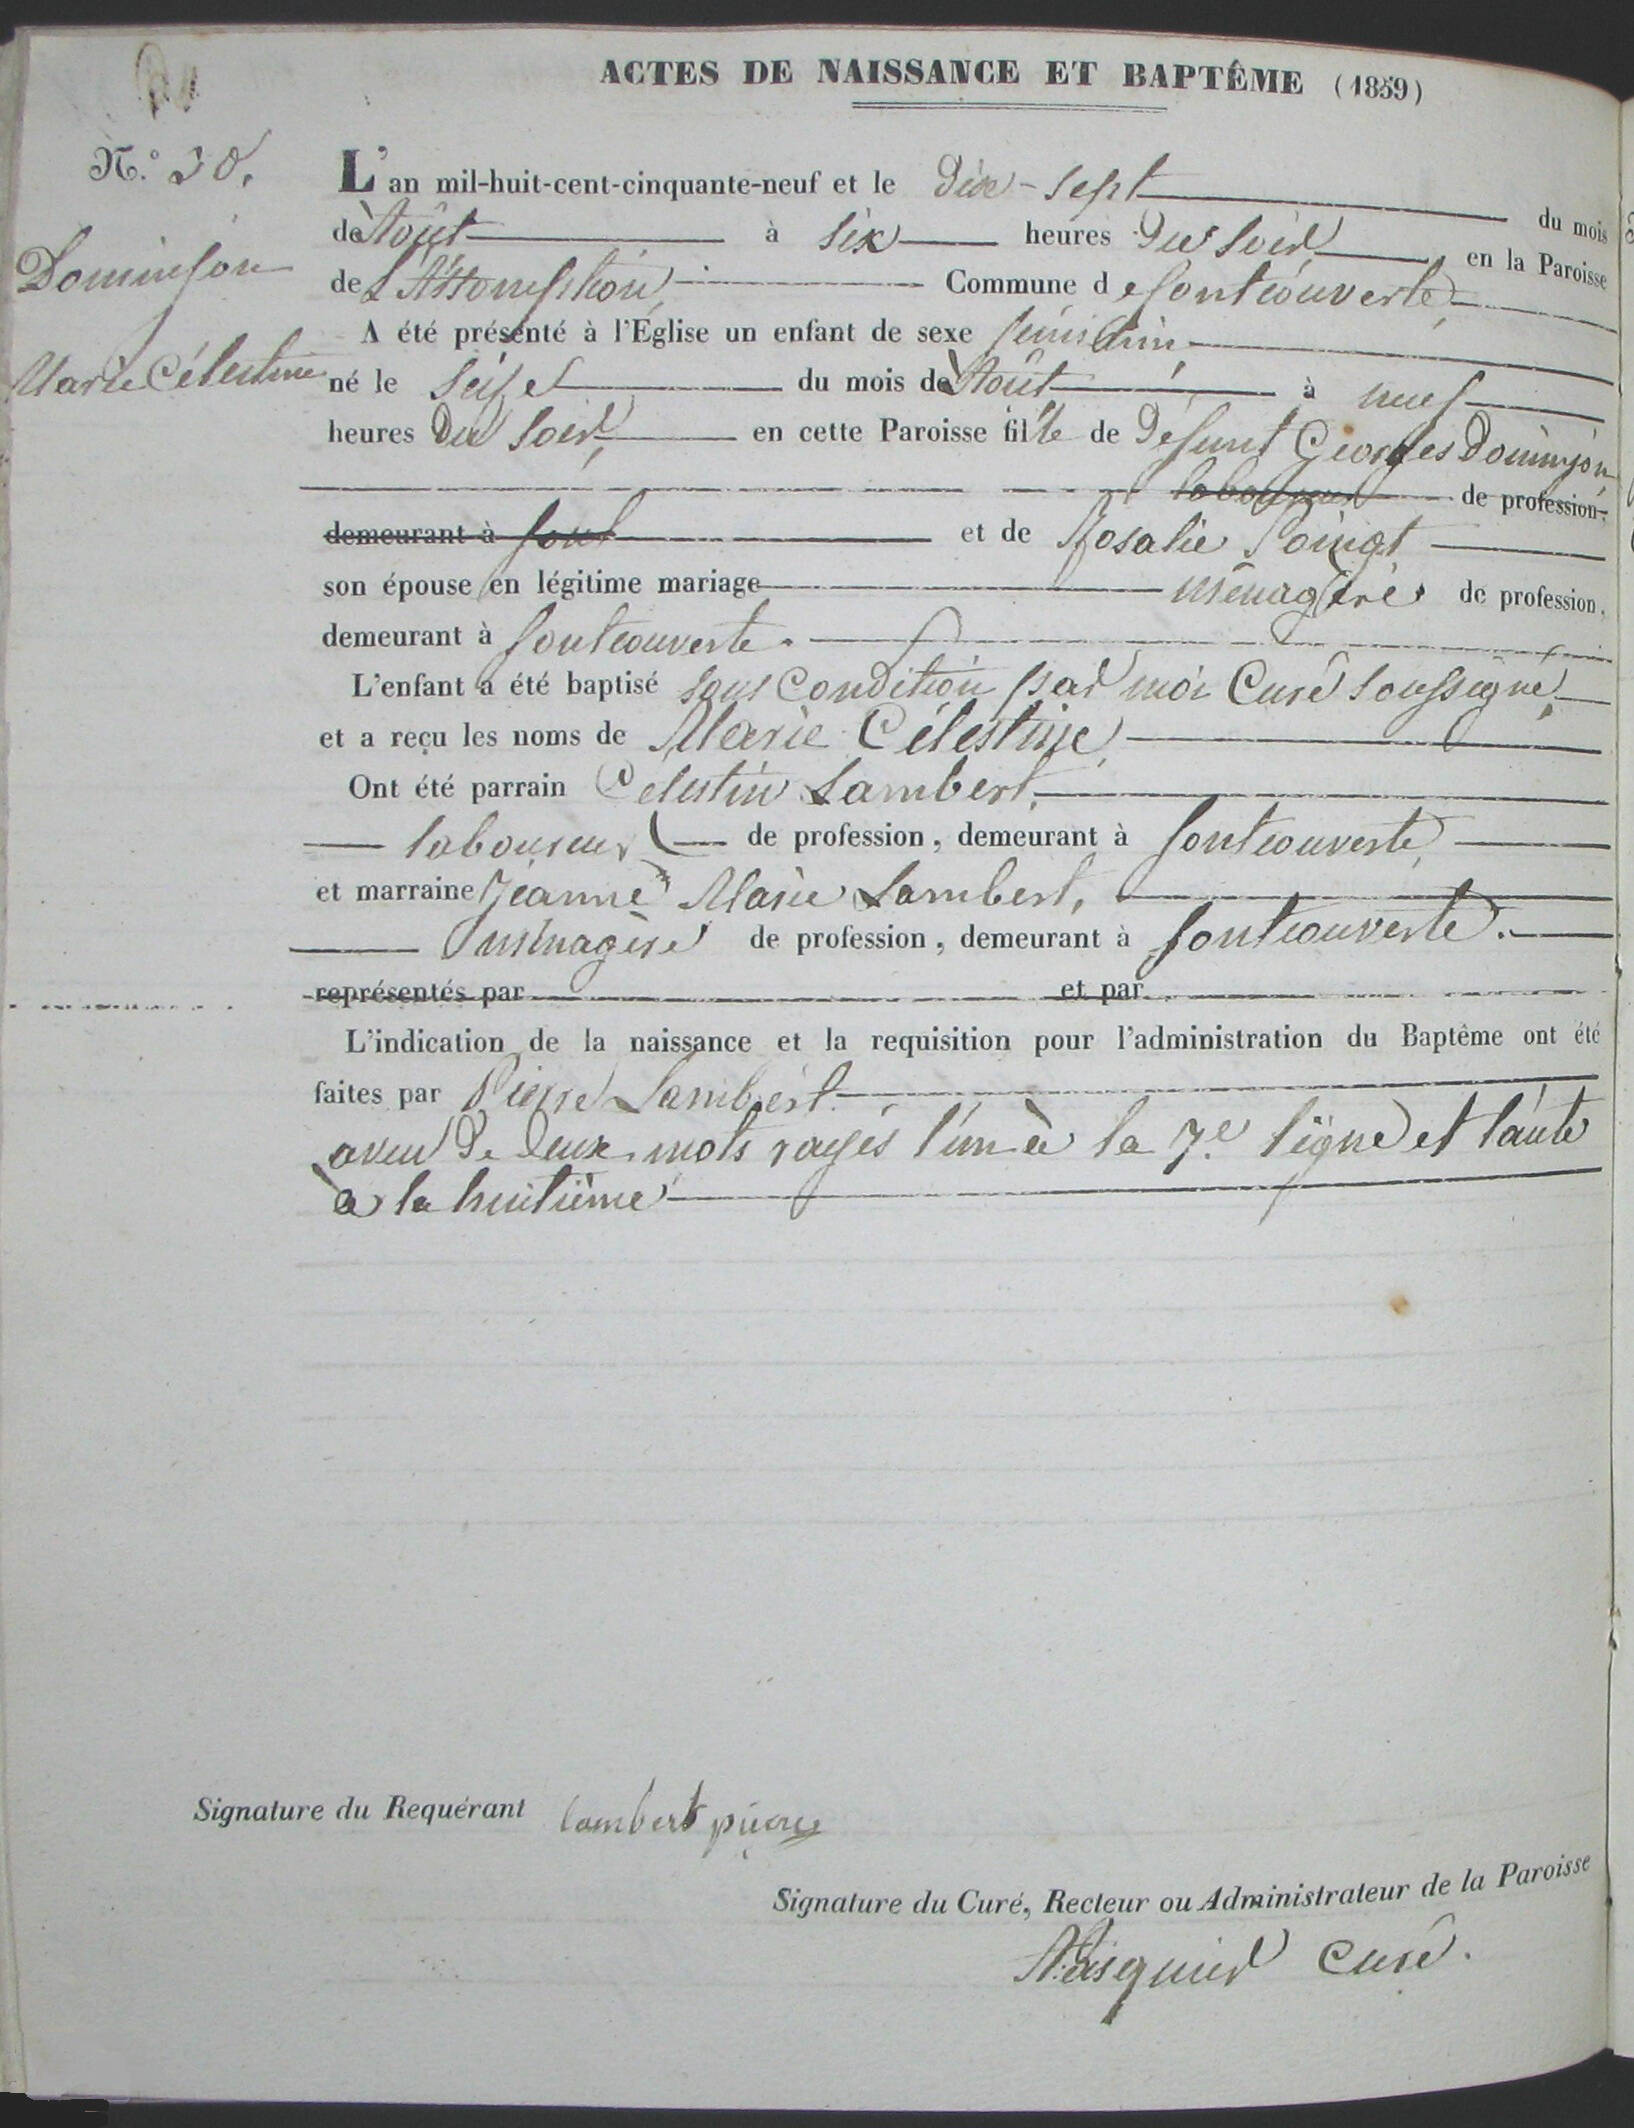 ACTES DE NAISSANCE ET BAPTÊME (1859)
N.º 30.
Dominjon
Marie Célestine
L'an mil-huit-cent-cinquante-neuf et le Dix-sept du mois
de Août à six heures Du soir, en la Paroisse
de L'Assomption, Commune de fontcouverte,
A été présenté à l'Eglise un enfant de sexe féminin
né le seize du mois de Août à neuf
heures Du soir, en cette Paroisse fille de Défunt Georges Dominjon
laboureur de profession,
demeurant à font et de Rosalie Poingt
son épouse en légitime mariage ménagère de profession,
demeurant à fontcouverte.
L'enfant a été baptisé sous Condition par moi Curé soussigné,
et a reçu les noms de Marie Célestine,
Ont été parrain Celestin Lambert,
laboureur de profession, demeurant à fontcouverte,
et marraine Jeanne Marie Lambert,
ménagère de profession, demeurant à fontcouverte.
représentés par et par
L'indication de la naissance et la requisition pour l'administration du Baptême ont été
faites par Pierre Lambert.
aveu De deux mots rayés l'un à la 7.e ligne et l'autre
à la huitième
Signature du Requérant lambert pierre
Signature du Curé, Recteur ou Administrateur de la Paroisse
Curé.